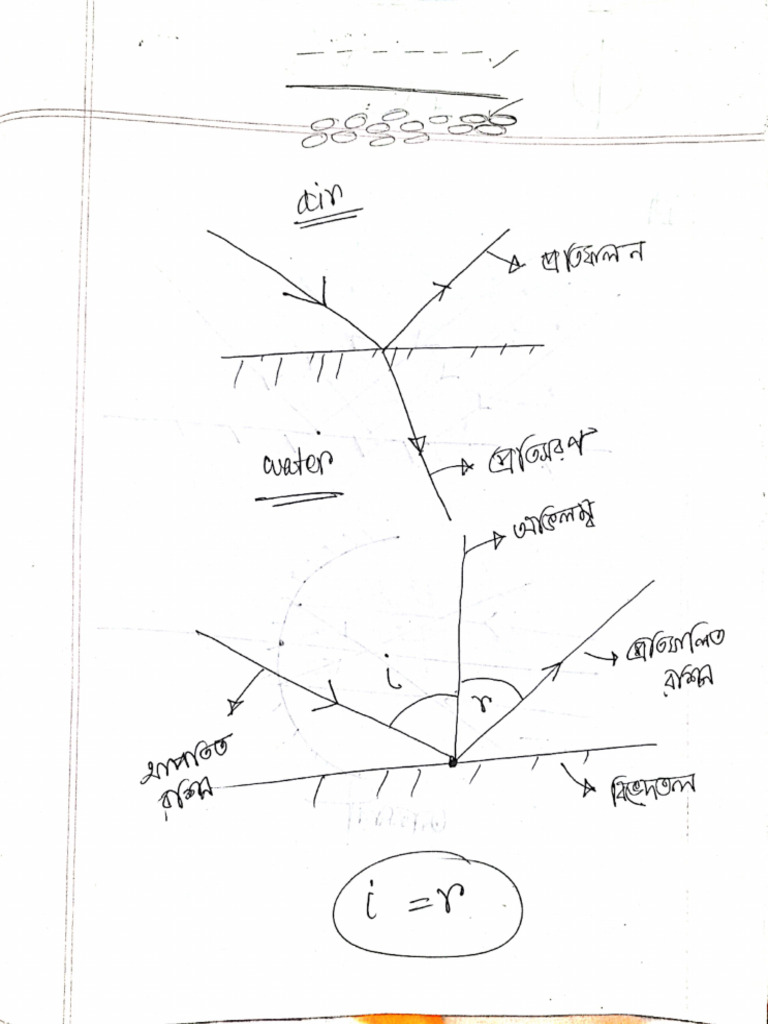 air
প্রতিফলন
water
প্রতিসরণ
অভিলম্ব
i
r
প্রতিফলিত
রশ্মি
আপতিত
রশ্মি
বিভেদতল
i = r